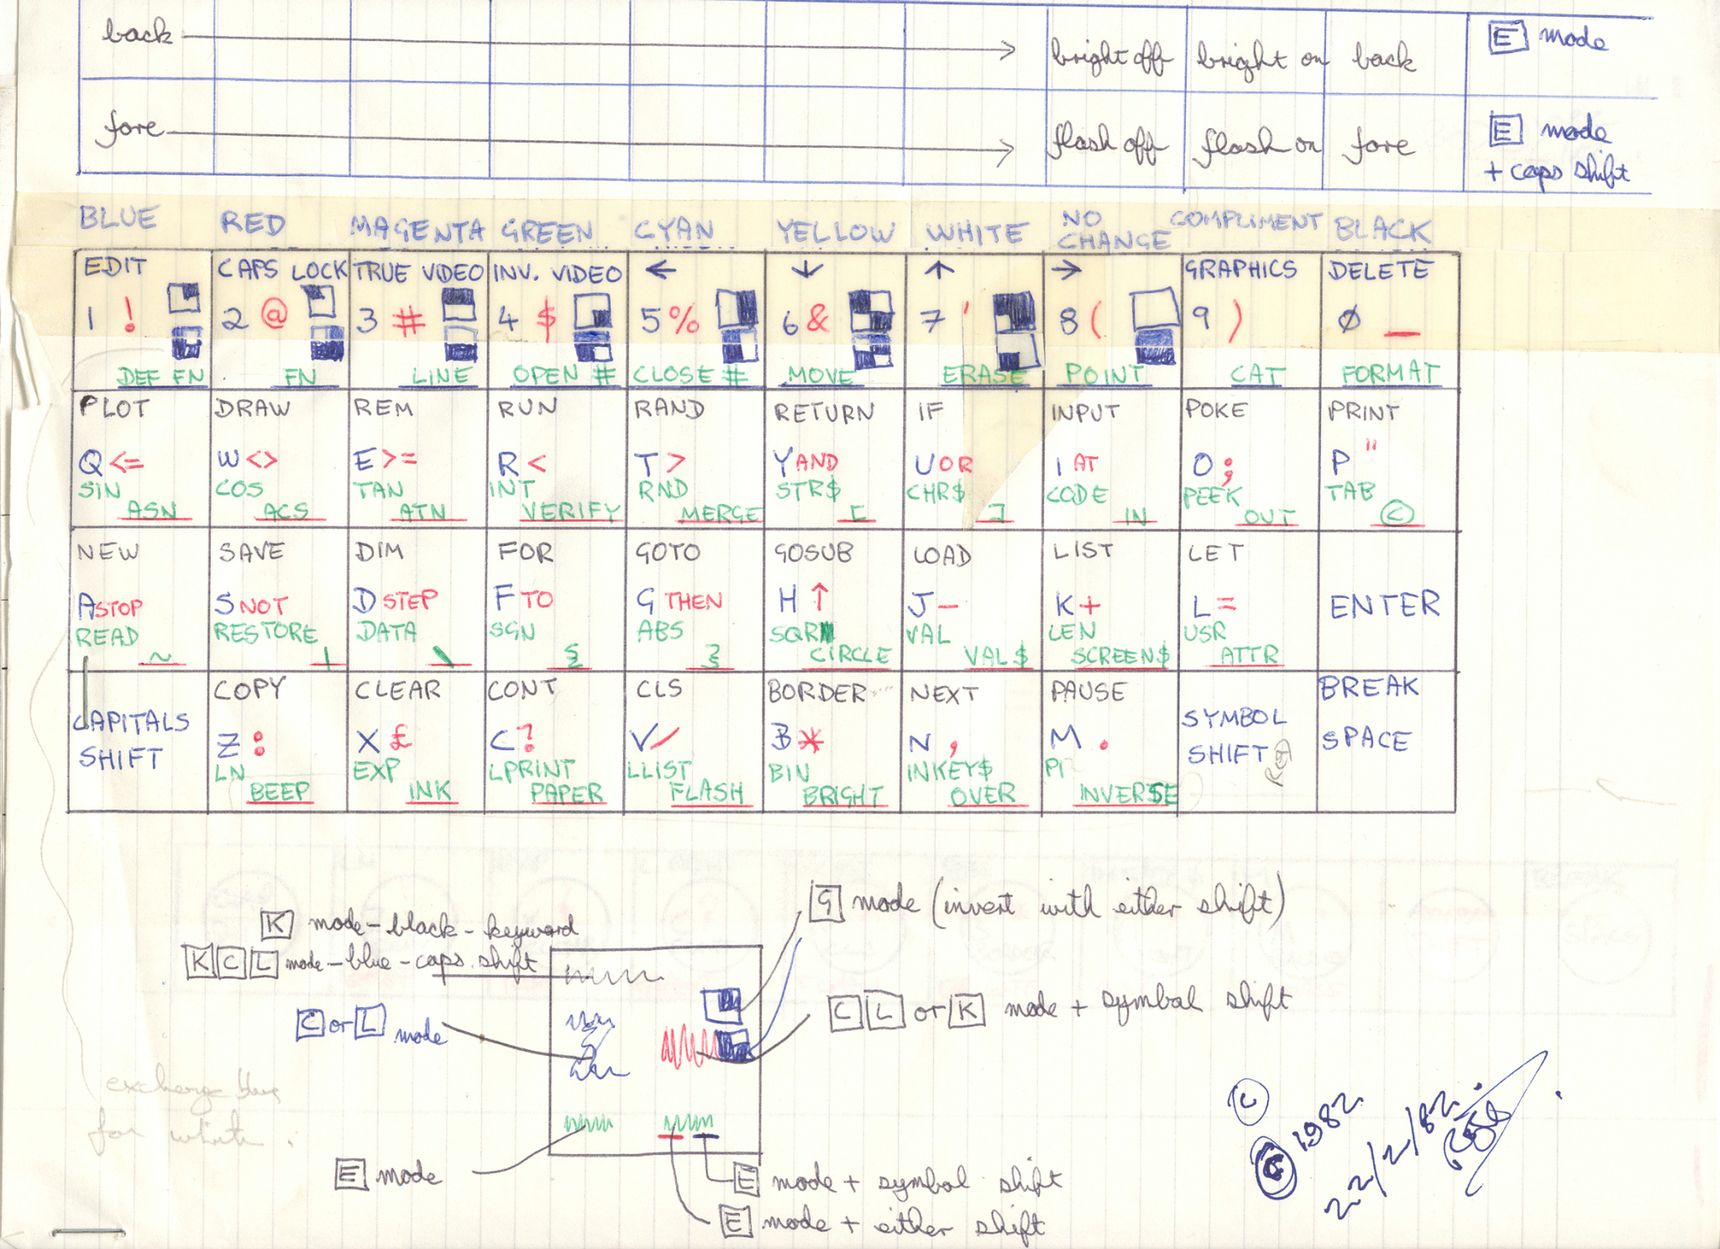 back bright off bright on back E mode
fore flash off flash on fore E mode
+ caps shift
BLUE RED MAGENTA GREEN CYAN YELLOW WHITE NO CHANGE COMPLIMENT BLACK
EDIT CAPS LOCK TRUE VIDEO INV. VIDEO ← ↓ ↑ → GRAPHICS DELETE
1 ! 2 @ 3 # 4 $ 5 % 6 & 7 ' 8 ( 9 ) 0 _
DEF FN FN LINE OPEN # CLOSE # MOVE ERASE POINT CAT FORMAT
PLOT DRAW REM RUN RAND RETURN IF INPUT POKE PRINT
Q <= W <> E >= R < T > Y AND U OR I AT O ; P "
SIN COS TAN INT RND STR$ CHR$ CODE PEEK TAB
ASN ACS ATN VERIFY MERGE [ ] IN OUT ©
NEW SAVE DIM FOR GOTO GOSUB LOAD LIST LET
A STOP S NOT D STEP F TO G THEN H ↑ J - K + L = ENTER
READ RESTORE DATA SGN ABS SQR VAL LEN USR
~ | \ { } CIRCLE VAL$ SCREEN$ ATTR
COPY CLEAR CONT CLS BORDER NEXT PAUSE BREAK
CAPITALS SHIFT Z : X £ C ? V / B * N , M . SYMBOL SHIFT RED SPACE
LN EXP LPRINT LLIST BIN INKEY$ PI
BEEP INK PAPER FLASH BRIGHT OVER INVERSE
G mode (invert with either shift)
K mode - black - keyword
K C L mode - blue - caps shift
C L or K mode + symbol shift
C or L mode
exchange blue
for white.
E mode
E mode + symbol shift
E mode + either shift
C
© 1982
22/2/82